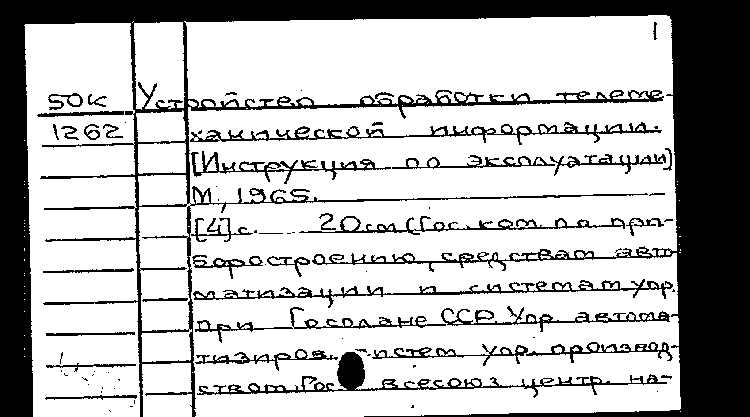 1
50к Устройство обработки телеме-
1262 ханической информации.
[Инструкция по эксплуатации]
М, 1965.
[4] с. 20 см (Гос. ком. по при-
боростроению, средствам авто-
матизации и системам упр.
при Госплане СССР. Упр автома-
тизиров. систем упр. производ-
ством. Гос. всесоюз центр. на-